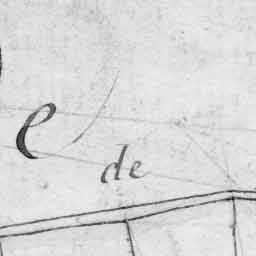 e
de